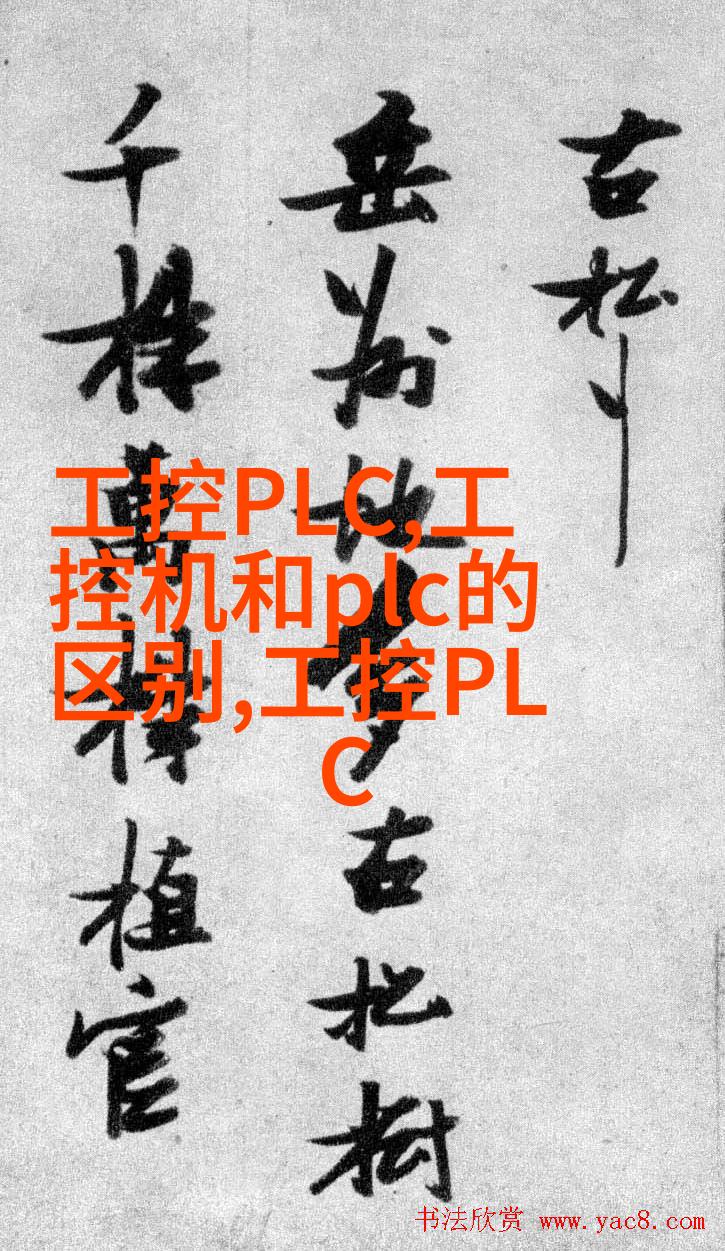 古松
岳地多古松樹
千株萬株植官
工控PLC,工
控机和plc的
区别,工控PL
C
书法欣赏 www.yac8.com